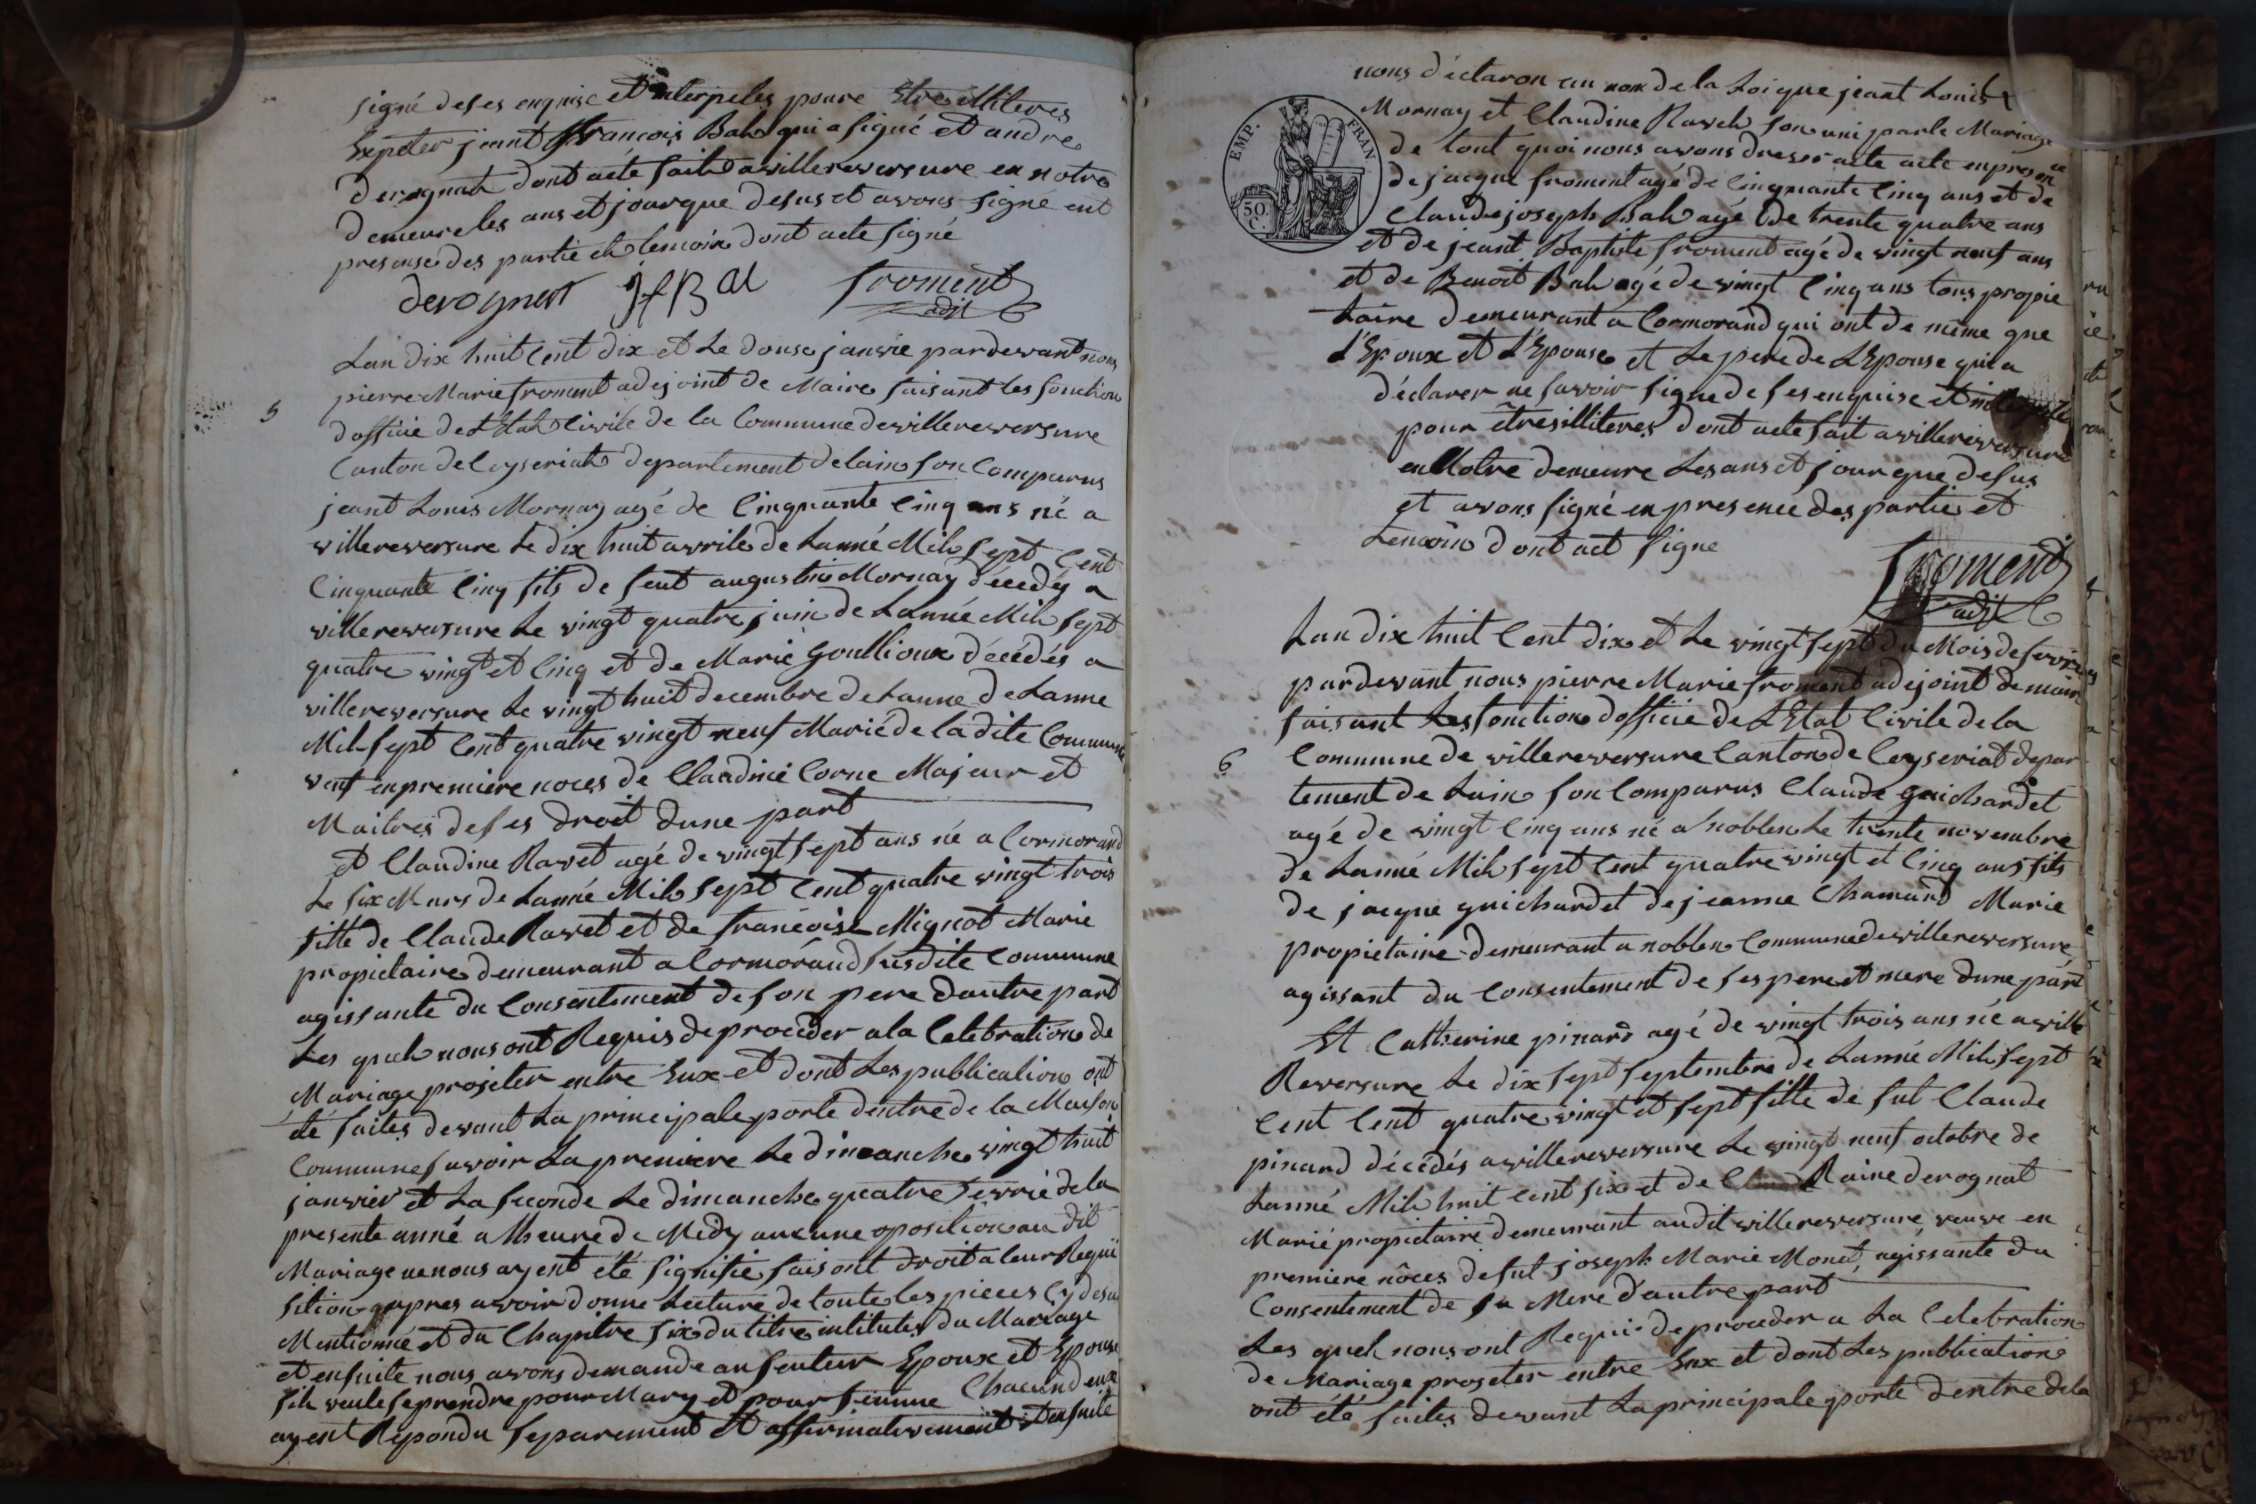 signé de ses enquise et interpeles poure Etre illiteres
Expeter jeant francois Bah qui a signé et andre
derognat dont acte fait a villereversure en notre
demeure les ans et jour que desus et avons signé ent
presense des partie et temoin dont acte signé
derognat jfBal froment
adjt
Lan dix huit Cent dix et Le douse janvie pardevant nous
pierre Marie froment adejoint de Maire faisant les fonction
5
dofficie de LEtat Civile de la Commune de villereversure
Canton de Ceyseriat departement de lain son Comparus
jeant Louis Mornay agé de Cinquante Cinq ans né a
villereversure Le dix huit avrile de Lanné Mil Sept Cent
Cinquante Cinq fils de feut augustin Mornay décedé a
villereversure Le vingt quatre juin de Lannée Mil Sept
quatre vingt et Cinq et de Marie Goullioux décédés a
villereversure Le vingt huit decembre de Lanne de Lanne
Mil Sept Cent quatre vingt neuf Marié de la dite Commune
veuf en premiere noces de Claudine Corne Majeur et
Maitres de ses droit dune part
et Claudine Ravet agé de vingt sept ans né a Cormorand
Le six Mars de Lanné Mil Sept Cent quatre vingt trois
fille de Claude Ravet et de francoise Mignot Marie
propietaire demeurant a Cormorand susdite Commune
agissante du Consentement de son pere dautre part
Les quels nous ont Requis de procéder a la Celebration de
Mariage projeter entre Eux et dont Les publication ont
été faites devant La principale porte dentre de la Maison
Commune savoir La premiere Le dimanche vingt huit
janvier et La seconde Le dimanche quatre fevrie de la
presente anné a Lheure de Midy aucune oposition au dit
Mariage ne nous ayent été signifie faisant droit a leur Requi
sition apres avoir donne Lecture de toute les pieces Cy desu
Mentionné et du Chapitre six du titre intituler du Mariage
et ensuite nous avons demande au futur Epoux et Epouse
sils veule se prendre pour Mary et pour femme Chacund eux
ayent Repondu separement et affirmativement et ensuite
nous déclaron au nom de la Loi que jeant Louis
EMP. FRAN
50. C.
Mornay et Claudine Ravet son uni par le Mariage
de tout quoi nous avons dresser acte acte en presence
de jacque froment agé de Cinquante Cinq ans et de
Claude joseph Bah agé de trente quatre ans
et de jeant Baptiste froment agé de vingt neuf ans
et de Benoit Bah agé de vingt Cinq ans tous propie
taire demeurant a Cormorand qui ont de même que
LEpoux et LEpouse et Le pere de LEpouse qui a
déclarer ne savoir signe de ses enquise et interpeles
pour êtres illiteres dont acte fait a villereversure
en Notre demeure Les ans et jour que desus
et avons signé en presence des partie et
temoin dont act signe
froment
adjt
Lan dix huit Cent dix et Le vingt sept du Mois de fevrie
pardevant nous pierre Marie froment adejoint de maire
faisant Les fonction dofficie de LEtat Civile de la
6
Commune de villereversure Canton de Ceyseriat depar
tement de Lain son Comparus Claude guichardet
agé de vingt Cinq ans né a noblen Le trente novembre
de Lanné Mil Sept Cent quatre vingt et Cinq ans fils
de jacque guichardet de jeanne Chamard Marie
propietaire demeurant a noblen Commune de villereversure
agissant du Consentement de ses pere et mere dune part
Et Catherine pinard agé de vingt trois ans né a ville
Reversure Le dix sept septembre de Lanné Mil Sept
Cent Cent quatre vingt et sept fille de fut Claude
pinard décédés a villereversure Le vingt neuf octobre de
Lanné Mil huit Cent six et de Raine derognat
Marié propietaire demeurant au dit villereversure, veuve en
premiere nôces de fut joseph Marie Monet, agissante du
Consentement de sa Mere dautre part
Les quels nous ont Requi de procéder a La Celebration
de Mariage projeter entre Eux et dont Les publication
ont été faites devant La principale porte dentre de la